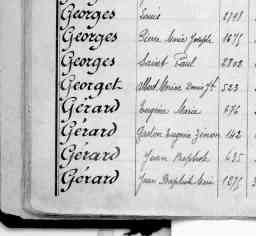 Georges Louis
Georges Pierre Marie Joseph 1675
Georges Saint Paul 2802
Georget Albert Marie Louis 523
Gérard Eugène Marie 676
Gérard Gaston Eugène 142
Gérard Jean Baptiste 635
Gérard Jean Baptiste Marie